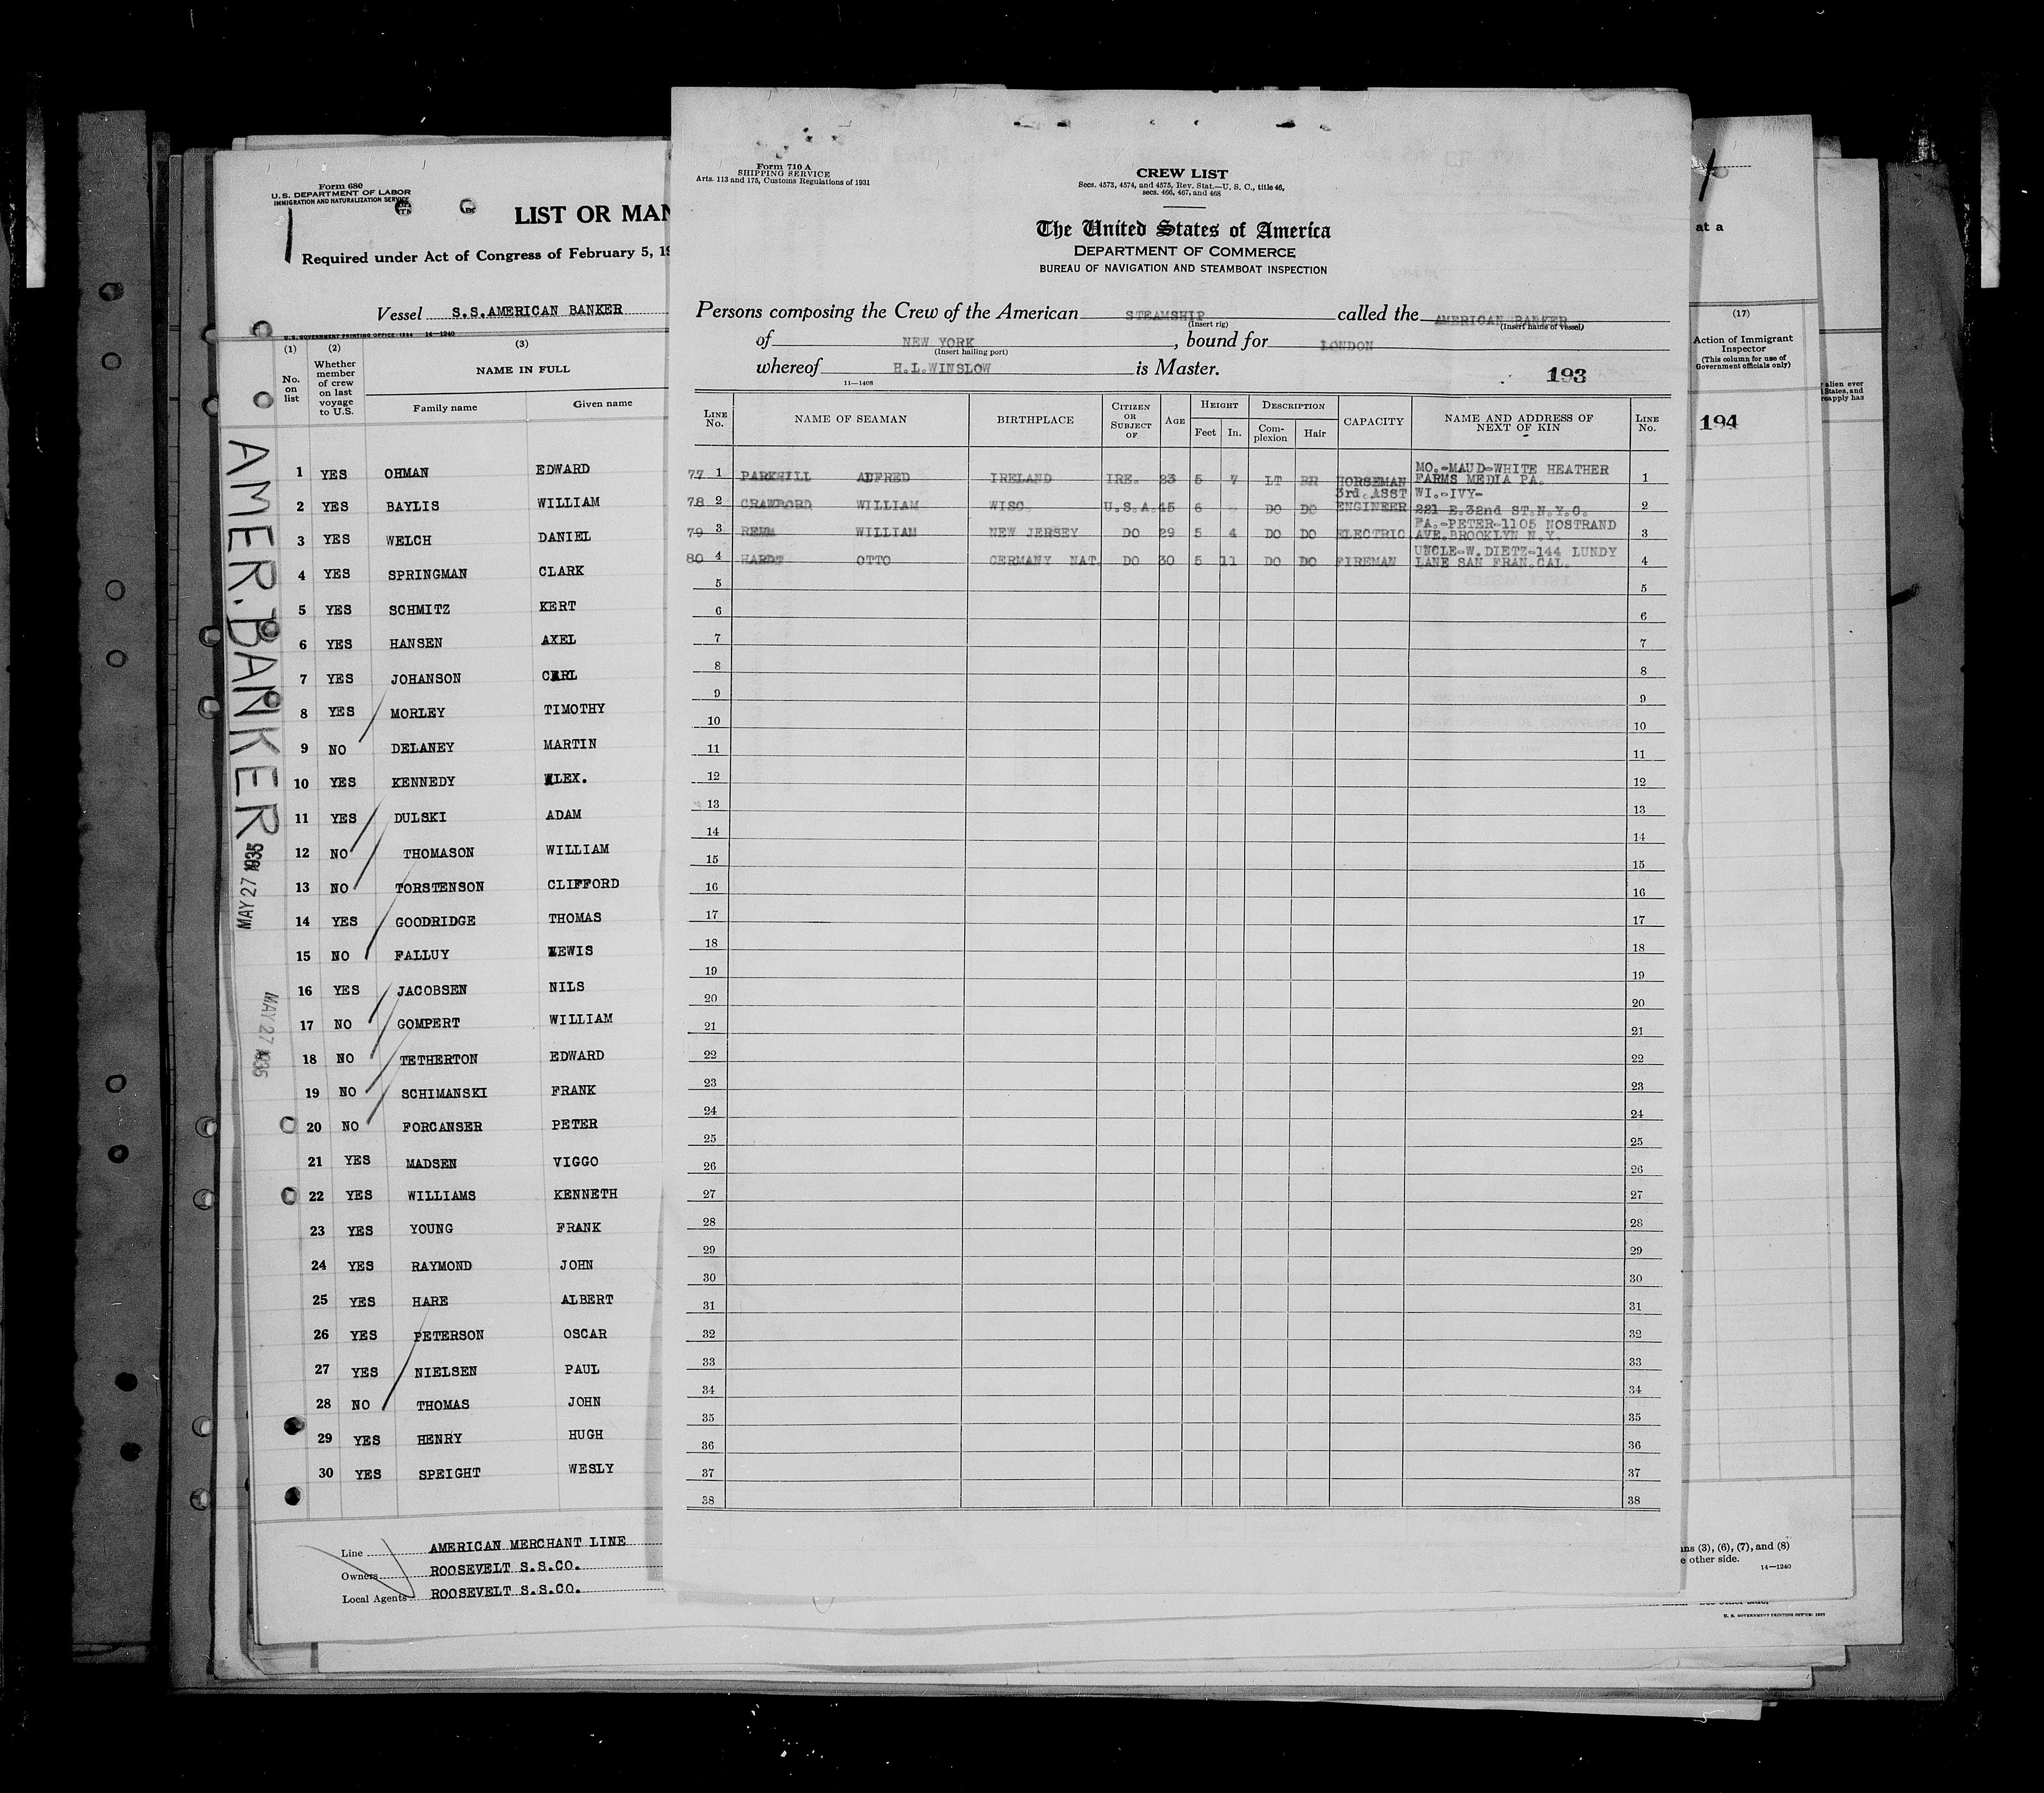 Form 680
U.S. DEPARTMENT OF LABOR
IMMIGRATION AND NATURALIZATION SERVICE
LIST OR MAN
Required under Act of Congress of February 5, 19
Vessel S.S.AMERICAN BANKER
U.S. GOVERNMENT PRINTING OFFICE: 1934 14—1240
(1) (2) (3)
No. on list Whether member of crew on last voyage to U.S. NAME IN FULL
Family name Given name
1 YES OHMAN EDWARD
2 YES BAYLIS WILLIAM
3 YES WELCH DANIEL
4 YES SPRINGMAN CLARK
5 YES SCHMITZ KERT
6 YES HANSEN AXEL
7 YES JOHANSON CARL
8 YES MORLEY TIMOTHY
9 NO DELANEY MARTIN
10 YES KENNEDY ALEX.
11 YES DULSKI ADAM
12 NO THOMASON WILLIAM
13 NO TORSTENSON CLIFFORD
14 YES GOODRIDGE THOMAS
15 NO FALLUY LEWIS
16 YES JACOBSEN NILS
17 NO GOMPERT WILLIAM
18 NO TETHERTON EDWARD
19 NO SCHIMANSKI FRANK
20 NO FORCANSER PETER
21 YES MADSEN VIGGO
22 YES WILLIAMS KENNETH
23 YES YOUNG FRANK
24 YES RAYMOND JOHN
25 YES HARE ALBERT
26 YES PETERSON OSCAR
27 YES NIELSEN PAUL
28 NO THOMAS JOHN
29 YES HENRY HUGH
30 YES SPEIGHT WESLY
Line AMERICAN MERCHANT LINE
Owners ROOSEVELT S.S.CO.
Local Agents ROOSEVELT S.S.CO.
AMER.BANKER
MAY 27 1935
MAY 27 1935
Form 710 A
SHIPPING SERVICE
Arts. 113 and 175, Customs Regulations of 1931
CREW LIST
Secs. 4573, 4574, and 4575, Rev. Stat.—U. S. C., title 46,
secs. 466, 467, and 468
The United States of America
DEPARTMENT OF COMMERCE
BUREAU OF NAVIGATION AND STEAMBOAT INSPECTION
Persons composing the Crew of the American STEAMSHIP called the AMERICAN BANKER
(Insert rig) (Insert name of vessel)
of NEW YORK, bound for LONDON
(Insert hailing port)
whereof H.L.WINSLOW is Master.
11—1408
193
LINE No. NAME OF SEAMAN BIRTHPLACE CITIZEN OR SUBJECT OF AGE HEIGHT DESCRIPTION CAPACITY NAME AND ADDRESS OF NEXT OF KIN LINE No.
Feet In. Complexion Hair
MO.-MAUD-WHITE HEATHER
77 1 PARKHILL ALFRED IRELAND IRE. 23 5 7 LT BR HORSEMAN FARMS MEDIA PA. 1
3rd.ASST WI.-IVY-
78 2 CRAWFORD WILLIAM WISC. U.S.A. 45 6 - DO DO ENGINEER 221 E.32nd ST.N.Y.C. 2
FA.-PETER-1105 NOSTRAND
79 3 WILLIAM NEW JERSEY DO 29 5 4 DO DO ELECTRIC AVE.BROOKLYN N.Y. 3
UNCLE-W.DIETZ-144 LUNDY
80 4 HARDT OTTO GERMANY NAT. DO 30 5 11 DO DO FIREMAN LANE SAN FRAN.CAL. 4
5 5
6 6
7 7
8 8
9 9
10 10
11 11
12 12
13 13
14 14
15 15
16 16
17 17
18 18
19 19
20 20
21 21
22 22
23 23
24 24
25 25
26 26
27 27
28 28
29 29
30 30
31 31
32 32
33 33
34 34
35 35
36 36
37 37
38 38
at a
(17)
Action of Immigrant
Inspector
(This column for use of
Government officials only)
194
alien ever
States, and
reapply has
ns (3), (6), (7), and (8)
e other side.
14—1240
U. S. GOVERNMENT PRINTING OFFICE: 1935